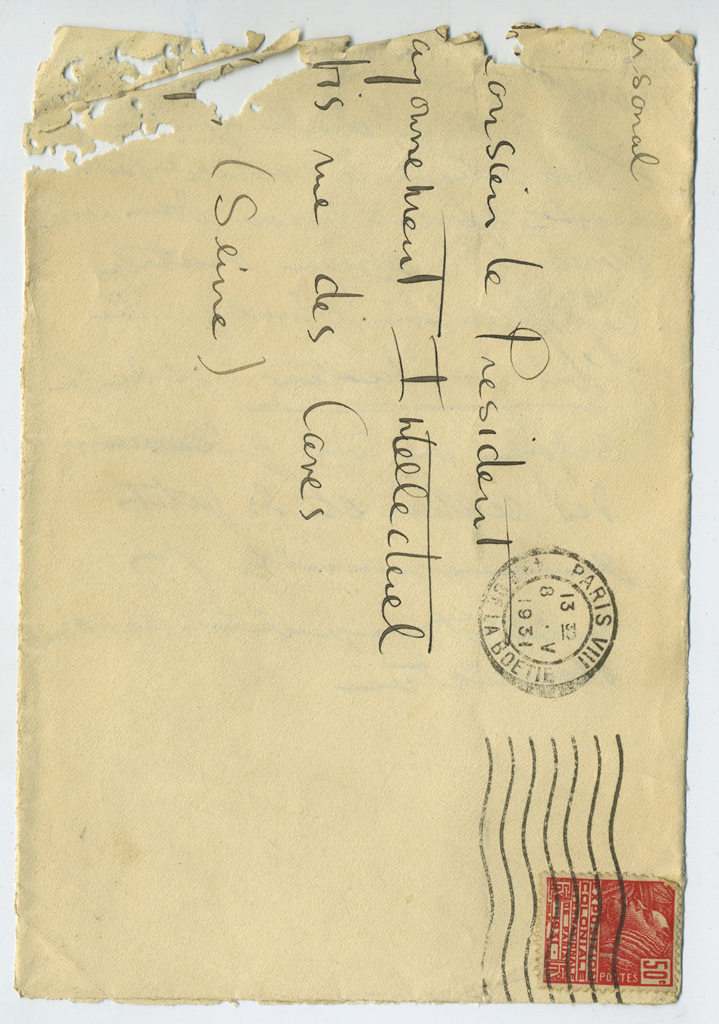 ersonal
onsieur le President
ayonnement Intellectuel
bis rue des Caves
(Seine)
PARIS VIII
13 30
8 · V
1931
LA BOETIE
EXPOSITION
COLONIALE
INTERNATIONALE
DE PARIS
1931
POSTES
50c